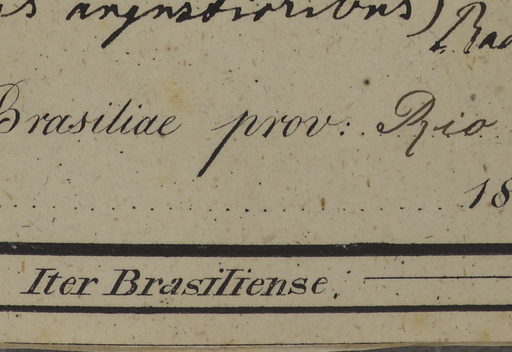 angustioribus)
Brasiliae prov: Rio
18
Iter Brasiliense.